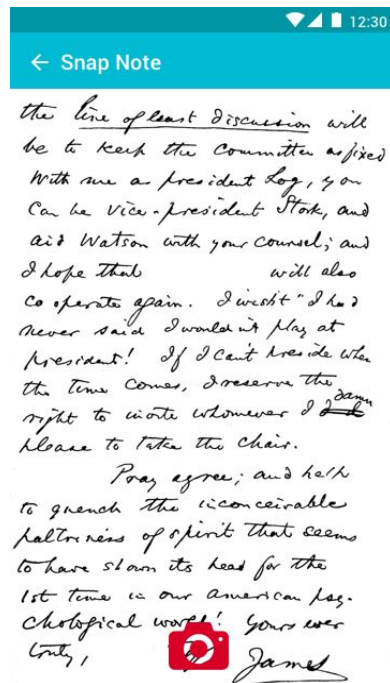 12:30
Snap Note
the line of least discussion will
be to keep the committee as fixed
With me as president Log, you
Can be Vice-president Stork, and
aid Watson with your counsel; and
I hope that will also
co operate again. I wisht "I had
never said I wouldn't play at
president! If I can't preside when
the time comes, I reserve the
damn
right to invite whomever I
please to take the chair.
Pray agree; and help
to quench the inconceivable
paltriness of spirit that seems
to have shown its head for the
1st time in our american psy-
chological world! Yours ever
truly,
James